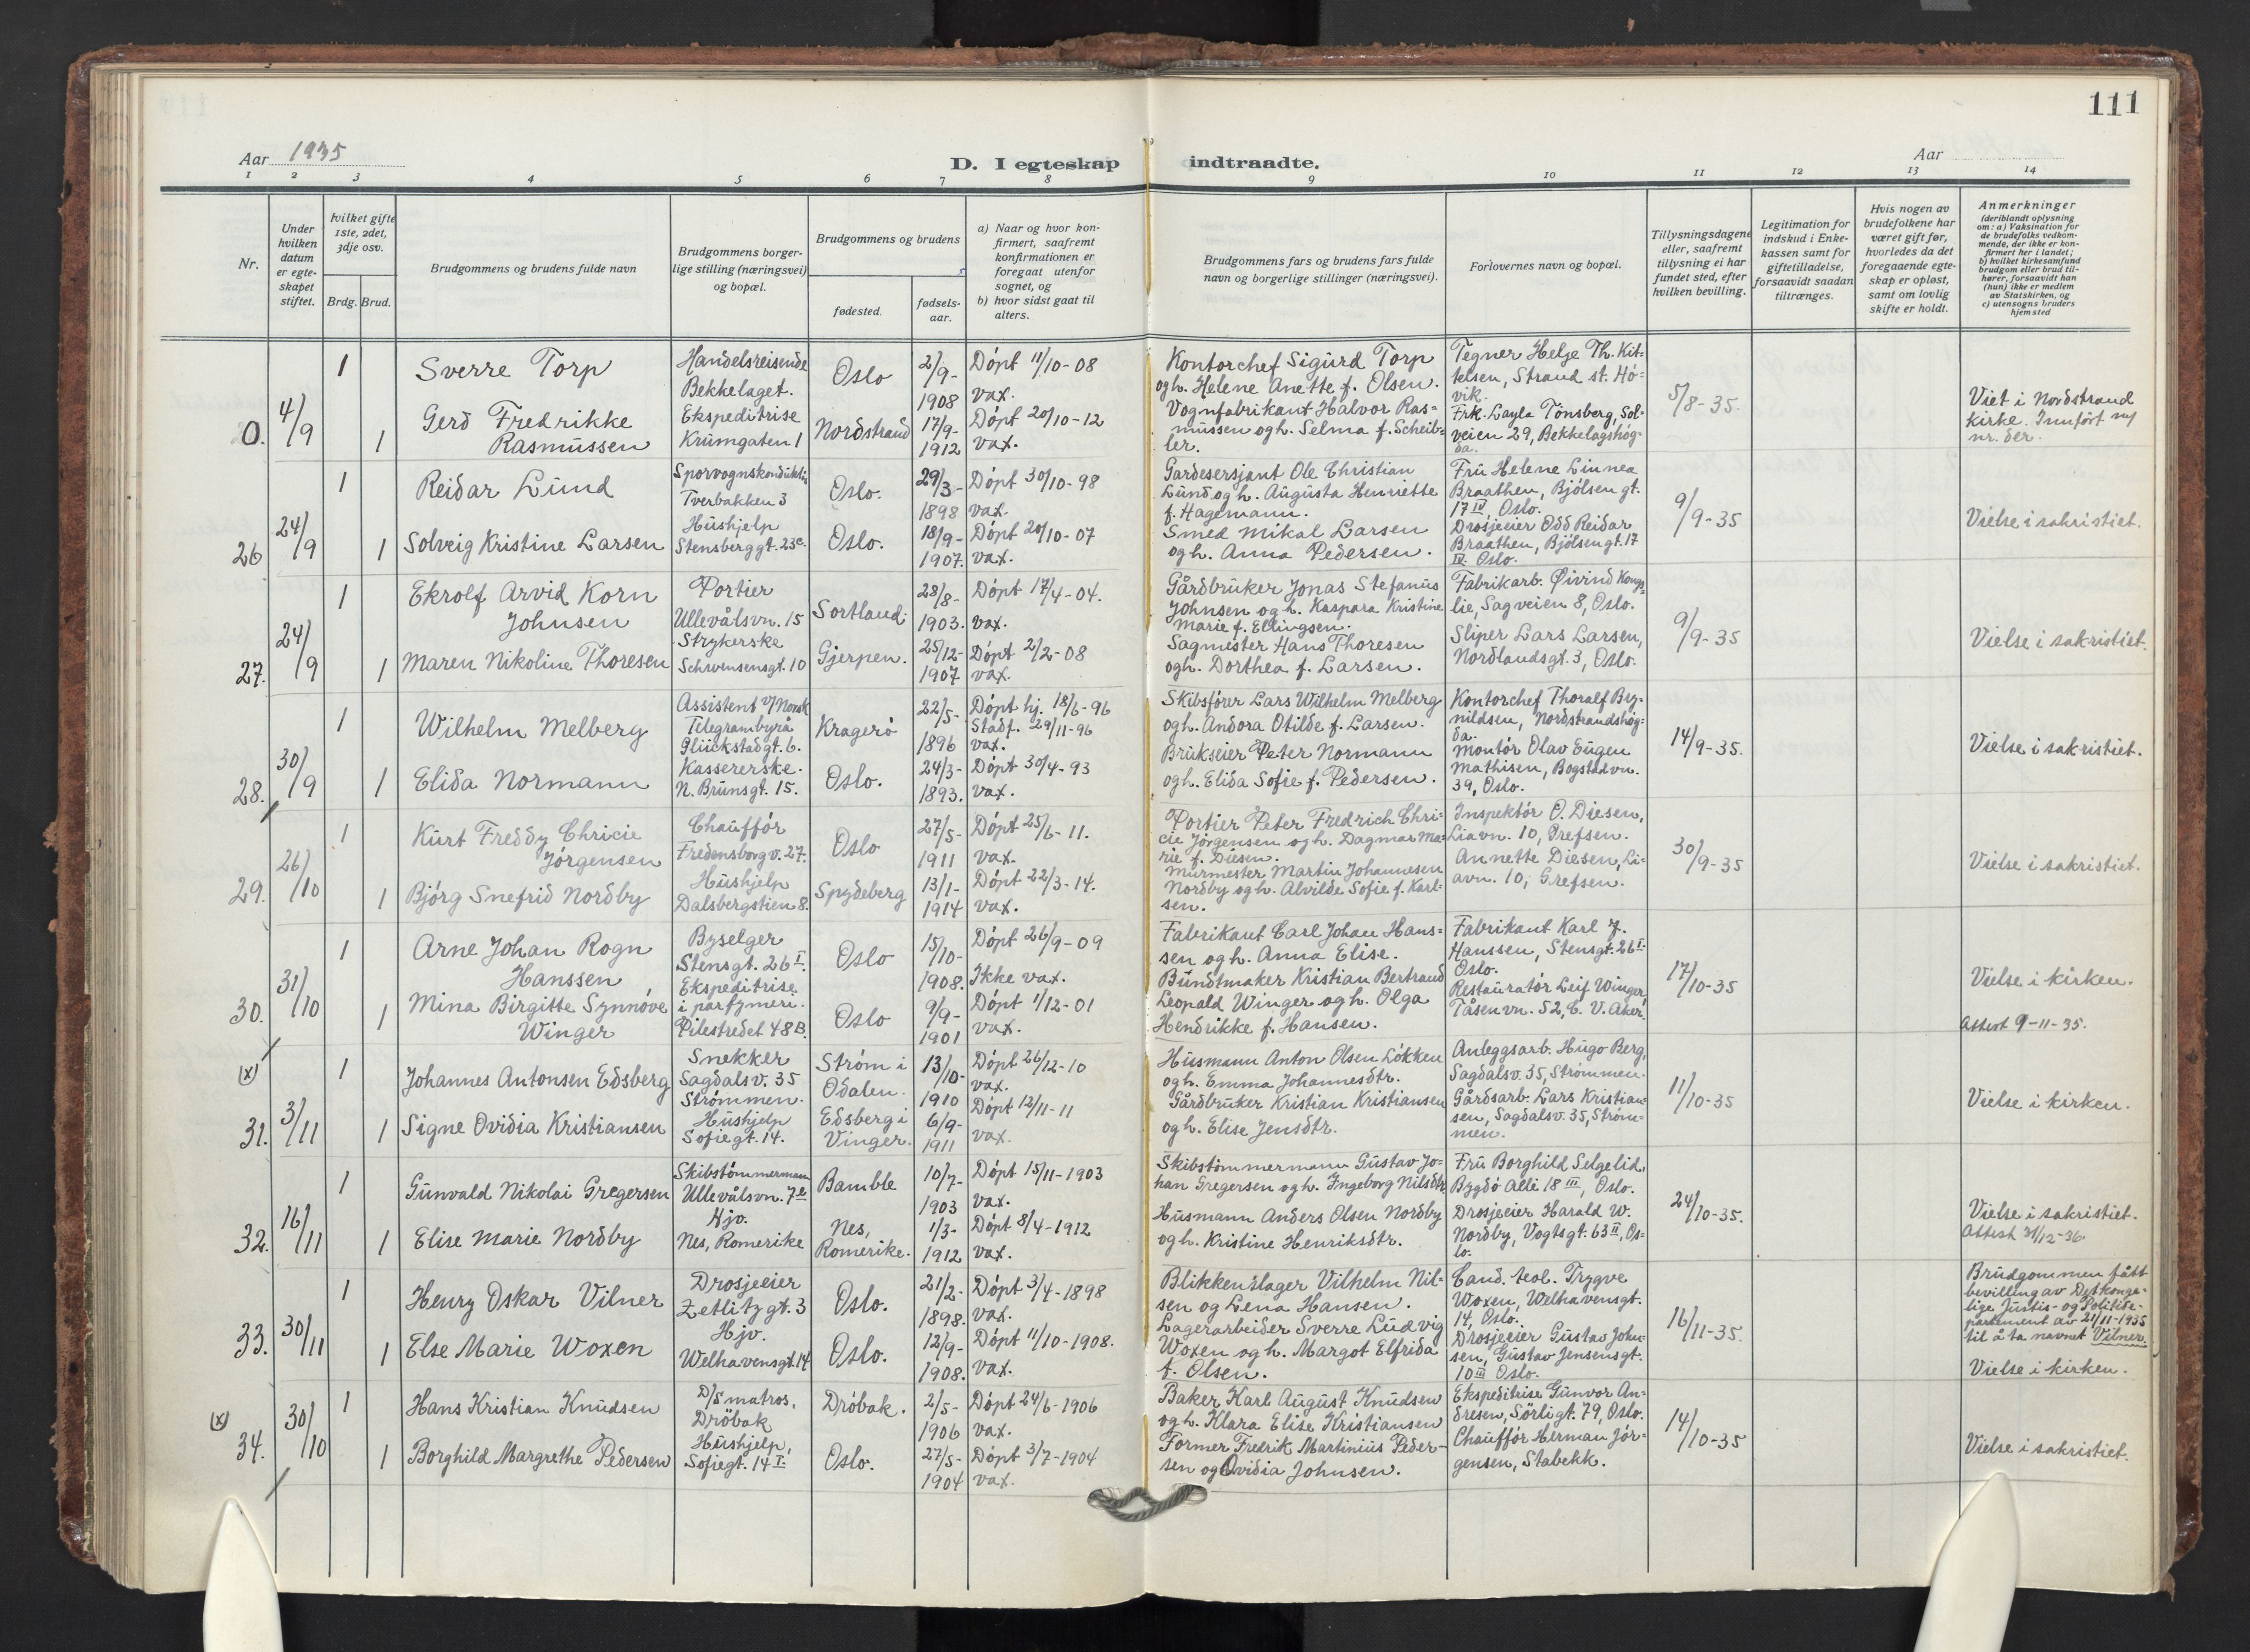 111
Aar 1935
D. I egteskap indtraadte.
Aar
1 2 3 4 5 6 7 8 9 10 11 12 13 14
Nr.
Under hvilken datum er egteskapet stiftet.
hvilket gifte 1ste, 2det, 3dje osv.
Brdg. Brud.
Brudgommens og brudens fulde navn
Brudgommens borgerlige stilling (næringsvei) og bopæl.
Brudgommens og brudens
fødested.
fødselsaar.
a) Naar og hvor konfirmert, saafremt konfirmationen er foregaat utenfor sognet, og
b) hvor sidst gaat til alters.
Brudgommens fars og brudens fars fulde navn og borgerlige stillinger (næringsvei).
Forlovernes navn og bopæl.
Tillysningsdagene eller, saafremt tillysning ei har fundet sted, efter hvilken bevilling.
Legitimation for indskud i Enkekassen samt for giftetilladelse, forsaavidt saadan tiltrænges.
Hvis nogen av brudefolkene har været gift før, hvorledes da det foregaaende egteskap er opløst, samt om lovlig skifte er holdt.
Anmerkninger (deriblandt oplysning om: a) Vaksination for de brudefolks vedkommende, der ikke er konfirmert her i landet, b) hvilket kirkesamfund brudgom eller brud tilhører, forsaavidt han (hun) ikke er medlem av Statskirken, og c) utensogns bruders hjemsted
0. 4/9
1 Sverre Torp
Handelsreisende Bekkelaget.
Oslo
2/9-1908
Döpt 11/10-08 vax.
1 Gerd Fredrikke Rasmussen
Ekspeditrise Krumgaten 1
Nordstrand
17/9-1912
Döpt 20/10-12 vax.
Kontorchef Sigurd Torp
og h. Helene Anette f. Olsen.
Vognfabrikant Halvor Ras=
mussen og h. Selma f. Scheib=
ler.
Tegner Helge Th. Kit=
telsen, Strand st. Hö-
vik.
Frk. Layla Tönsberg, Sol-
veien 29, Bekkelagshög-
da.
5/8-35.
Viet i Nordstrand
kirke. Innfört m/
nr. der.
26 24/9
1 Reidar Lund
Sporvognskonduktör
Tverbakken 3
Oslo.
29/3-1898
Döpt 30/10-98 vax.
1 Solveig Kristine Larsen
Hushjelp
Stensberggt. 23c.
Oslo.
18/9-1907.
Döpt 20/10-07 vax.
Gardesersjant Ole Christian
Lund og h. Augusta Henriette
f. Hagemann.
Smed Mikal Larsen
og h. Anna Pedersen.
Fru Helene Linnea
Braathen, Bjölsen gt.
17 IV, Oslo.
Drosjeeier Odd Reidar
Braathen, Bjölsengt. 17
IV. Oslo.
9/9-35
Vielse i sakristiet.
27. 24/9
1 Ekrolf Arvid Korn Johnsen
Portier
Ullevålsvn. 15
Sortland.
28/8-1903.
Döpt 17/4-04. vax.
1 Maren Nikoline Thoresen
Strykerske
Schwensensgt. 10
Gjerpen.
25/12-1907
Döpt 2/2-08 vax.
Gårdbruker Jonas Stefanus
Johnsen og h. Kaspara Kristine
Marie f. Ellingsen.
Sagmester Hans Thoresen
og h. Dorthea f. Larsen.
Fabrikarb. Øivind Kongs=
lie, Sagveien 8, Oslo.
Sliper Lars Larsen,
Nordlandsgt. 3, Oslo.
9/9-35
Vielse i sakristiet.
28. 30/9
1 Wilhelm Melberg
Assistent v/ Norsk
Telegrambyrå
Glückstadgt. 6.
Kragerö
22/5-1896
Döpt hj. 18/6-96
Stadf. 29/11-96
vax.
1 Elida Normann
Kassererske.
N. Brunsgt. 15.
Oslo.
24/3-1893.
Döpt 30/4-93 vax.
Skibsförer Lars Wilhelm Melberg
og h. Andora Otilde f. Larsen.
Brukseier Peter Normann
og h. Elida Sofie f. Pedersen.
Kontorchef Thoralf Bry-
nildsen, Nordstrandshög-
da.
Montör Olav Eugen
Mathisen, Bogstadvn.
39, Oslo.
14/9-35.
Vielse i sakristiet.
29. 26/10
1 Kurt Freddy Chricie Jörgensen
Chaufför
Fredensborgv. 27.
Oslo
27/5-1911
Döpt 25/6-11. vax.
1 Bjórg Snefrid Nordby
Hushjelp
Dalsbergstien 8.
Spydeberg
13/1-1914
Döpt 22/3-14. vax.
Portier Peter Fredrich Chri-
cie Jörgensen og h. Dagmar Ma=
rie f. Diesen.
Murmester Martin Johannesen
Nordby og h. Alvilde Sofie f. Karl=
sen.
Inspektör O. Diesen,
Liavn. 10, Grefsen.
Annette Diesen, Li-
avn. 10, Grefsen.
30/9-35
Vielse i sakristiet.
30. 31/10
1 Arne Johan Rogn Hanssen
Byselger
Stensgt. 26 I.
Oslo
15/10-1908.
Döpt 26/9-09
Ikke vax.
1 Mina Birgitte Synnöve Winger
Ekspeditrise
i parfymeri.
Pilestredet 48B.
Oslo
9/9-1901
Döpt 1/12-01 vax.
Fabrikant Carl Johan Hans=
sen og h. Anna Elise.
Bundtmaker Kristian Bertrand
Leopald Winger og h. Olga
Hendrikke f. Hansen.
Fabrikant Karl J.
Hanssen, Stensgt. 26 I.
Oslo.
Restauratör Leif Winger,
Tåsenvn. 52, V. Aker.
17/10-35
Vielse i kirken.
Attest 9-11-35.
(x)
31. 3/11
1 Johannes Antonsen Edsberg
Snekker
Sagdalsv. 35
Strömmen.
Ström i Odalen.
13/10-1910
Döpt 26/12-10 vax.
1 Signe Ovidia Kristiansen
Hushjelp
Sofiegt. 14.
Edsberg i Vinger.
6/9-1911
Döpt 12/11-11 vax.
Husmann Anton Olsen Lökken
og h. Emma Johannesdtr.
Gårdbruker Kristian Kristiansen
og h. Elise Jensdtr.
Anleggsarb. Hugo Berg,
Sagdalsv. 35, Strömmen.
Gårdsarb. Lars Kristian-
sen, Sagdalsv. 35, Ström-
men.
11/10-35
Vielse i kirken.
32. 16/11
1 Gunvald Nikolai Gregersen
Skibstömmermann
Ullevålsvn. 7e
Bamble
10/7-1903
Döpt 15/11-1903 vax.
1 Elise Marie Nordby
Hjv.
Nes, Romerike
Nes, Romerike.
1/3-1912
Döpt 8/4-1912 vax.
Skibstömmermann Gustav Jo-
han Gregersen og h. Ingeborg Nilsdtr.
Husmann Anders Olsen Nordby
og h. Kristine Henriksdtr.
Fru Borghild Selgelid,
Bygdö Allé 18 III, Oslo.
Drosjeeier Harald W.
Nordby, Vogtsgt. 63 II, Os-
lo.
24/10-35.
Vielse i sakristiet.
Attest 31/12-36
33. 30/11
1 Henry Oskar Vilner
Drosjeeier
Zetlitzgt. 3
Oslo.
21/2-1898.
Döpt 3/4-1898 vax.
1 Else Marie Woxen
Hjv.
Welhavensgt. 14
Oslo.
12/9-1908.
Döpt 11/10-1908. vax.
Blikkenslager Vilhelm Nil-
sen og Lena Hansen.
Lagerarbeider Sverre Ludvig
Woxen og h. Margot Elfrida
f. Olsen.
Cand. teol. Trygve
Woxen, Welhavensgt.
14, Oslo.
Drosjeeier Gustav John-
sen, Gustav Jensensgt.
10 III Oslo.
16/11-35.
Brudgommen fått
bevilling av Det konge-
lige Justis- og Politide-
partement av 21/11-1935
til å ta navnet Vilner.
Vielse i kirken.
(x)
34. 30/10
1 Hans Kristian Knudsen
D/S matros,
Dröbak
Dröbak.
2/5-1906
Döpt 24/6-1906 vax.
1 Borghild Margrethe Pedersen
Hushjelp,
Sofiegt. 14 I.
Oslo.
27/5-1904
Döpt 3/7-1904 vax.
Baker Karl August Knudsen
og h. Klara Elise Kristiansen
Former Fredrik Martinius Peder-
sen og Ovidia Johnsen.
Ekspeditrise Gunvor An-
dresen, Sörligt. 79, Oslo.
Chaufför Herman Jör-
gensen, Stabekk.
14/10-35
Vielse i sakristiet.